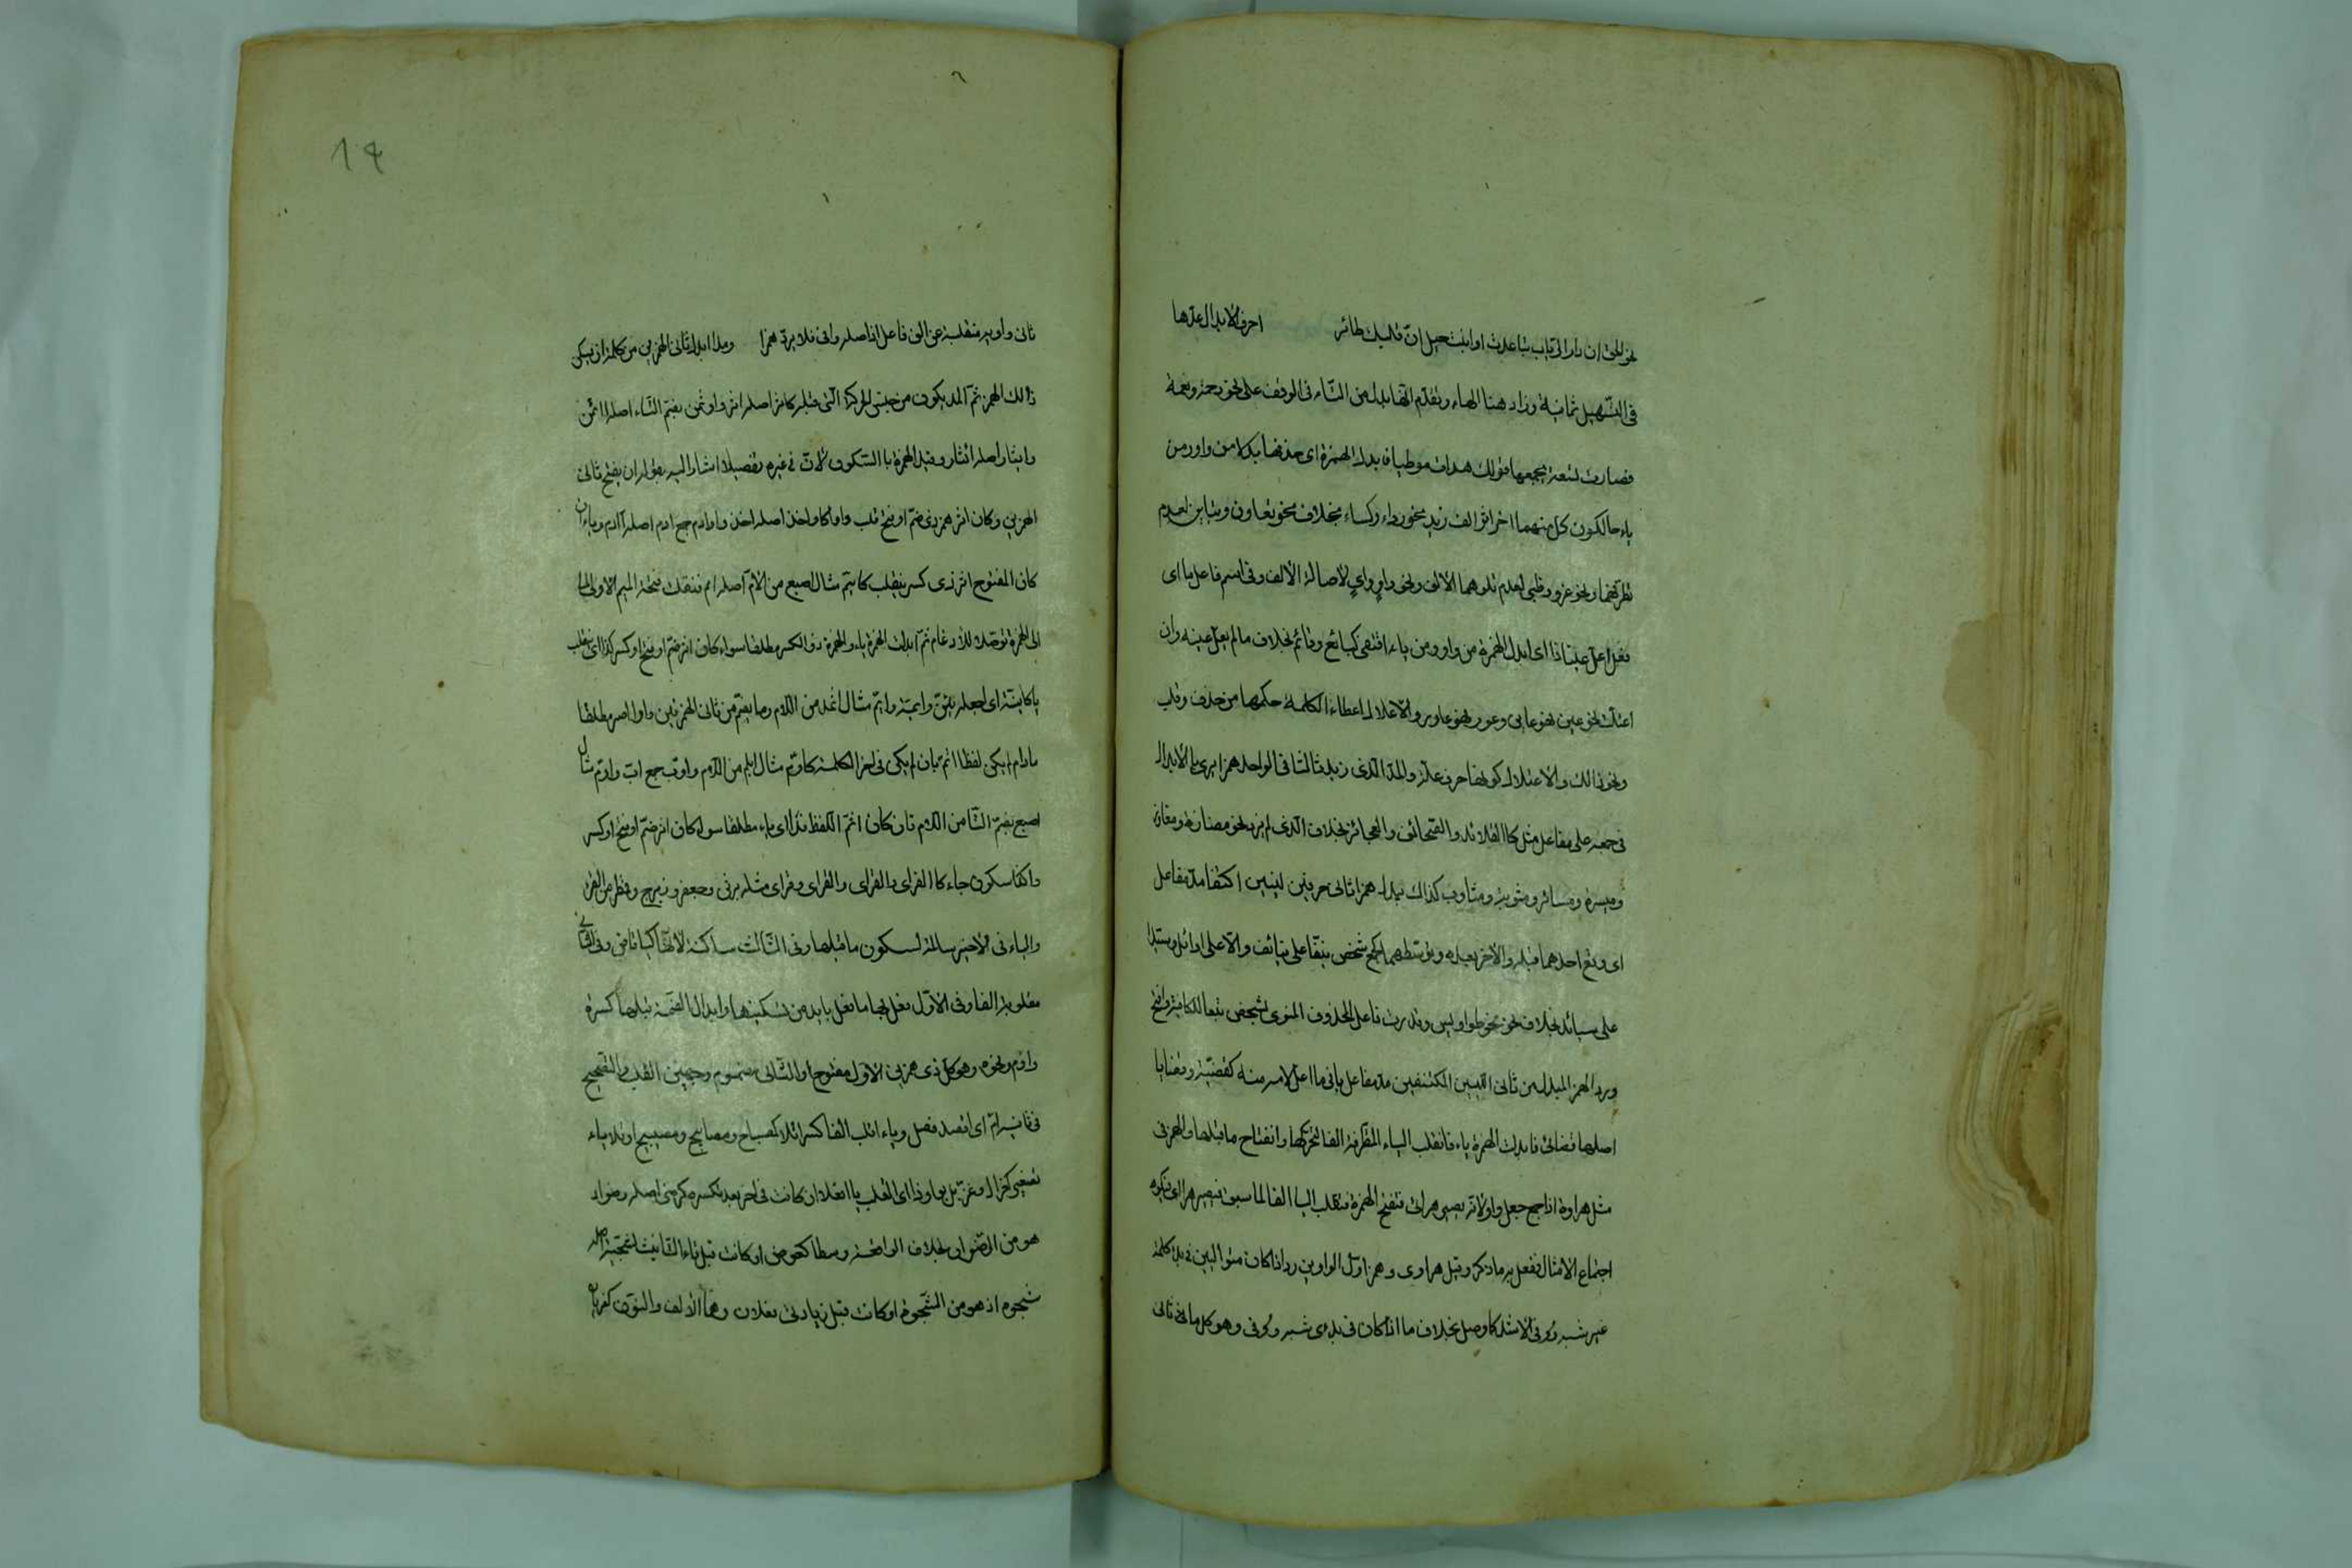 نحو الحق ان دار الرباب تباعدت او انبت حبل ان قلبك طائر احرف الابدال عدها
فى التسهيل ثمانية وزاد هنا الهاء وتقدم انها تبدل من التاء فى الوقف على نحو رحمة ونعمة
فصارت تسعة يجمعها قولك هدات موطيا فابدل الهمزة اى خذها بدلا من واو ومن
ياء حالكون كل منهما اخرا اثر الف زيد نحو رداء وكساء بخلاف نحو تعاون وتباين لعدم
تطرفهما ونحو غزو وظبى لعدم تلوهما الالف ونحو واو واى لاصالة الالف وفى اسم فاعل ما اى
فعل اعل عينا ذا اى ابدل الهمزة من واو ومن ياء اقتفى كبائع وقائم بخلاف ما لم يعل عينه وان
اعتلت نحو عين نحو عاين وعور نحو عاور والاعلال اعطاء الكلمة حكمها من حذف وقلب
ونحو ذالك والاعتلال كونها حرف علة والمد الذى زيد ثالثا فى الواحد همزا يرى بالابدال
فى جمعه على مفاعل مثل كالقلائد والصحائف والعجائز بخلاف الذى لم يزد نحو مفازة ومفاوز
وميسرة ومياسر ومثوبة ومثاوب كذاك يبدل همزا ثانى حرفين لينين اكتنفا مد مفاعل
اى وقع احدهما قبله والاخر بعده وتوسطهما كجمع شخص نيفا على نيائف والا على اوائل وسيدا
على سيائد بخلاف نحو طواويس وقدرت فاعل المحذوف المنوى بشخص تبعا للكافية وافتح
ورد الهمز المبدل من ثانى اللينين المكتنفين مد مفاعل يا فى ما اعل لامه منه كقضية وقضايا
اصلها قضائى فابدلت الهمزة ياء فانقلب الياء المتطرفة الفا لتحركها وانفتاح ما قبلها والهمز فى
مثل هراوة اذا جمع جعل واوا لانه يصير هرائى فتفتح الهمزة فتقلب اليا الفا لما سبق فيصير هراءا فيكره
اجتماع الامثال ففعل به ما ذكر وقيل هراوى وهمزا اول الواوين رد اذا كان متواليين فى بدء كلمة
غير شبه ووفى الاشد كاواصل بخلاف ما اذا كان فى بدء شبه ووفى وهو كل ما فى ثانى
١٤
ثانى واويه منقلبة عن الف فاعل اذ اصله وافى فلا يرد همزا ومدا ابدل ثانى الهمزين من كلمة ان يسكن
ذالك الهمز ثم المد يكون من جنس الحركة التى قبله كاثر اصله ااثر واوتمن بضم التاء اصله ااتمن
وايثار اصله ائثار وقيد الهمزة با السكون لان فى غيره تفصيلا اشار اليه بقوله ان يفتح ثانى
الهمزين وكان اثر همز ذى ضم او فتح قلب واوا كاواخذ اصله ااخذ واوادم جمع ادم اصله اادم وياء ان
كان المفتوح اثر ذى كسر ينقلب كايتم مثال اصبع من الام اصله ائمم فنقلت فتحة الميم الاولى الى
الى الهمزة توصلا للادغام ثم ابدلت الهمزة ياء والهمزة ذو الكسر مطلقا سواء كان اثر ضم او فتح او كسر كذا اى ينقلب
يا كاينة اى اجعله يئن وايمة وايم مثال اثمد من الام وما يضم من ثانى الهمزتين واوا اصر مطلقا
مادام لم يكن لفظا اتم بان لم يكن فى اخر الكلمة كاوم مثال ابلم من الام واوب جمع اب واوم مثال
اصبع بضم البا من الام فان كان اتم اللفظ فذا اى ياء مطلقا سواء كان اثر ضم او فتح او كسر
وكذا سكون جاء كا القراى والقراى والقراى وقراى مثل برثن وجعفر وزبرج وقمطر من القراء
والياء فى الاخير سالمة لسكون ما قبلها وفى الثالث ساكنة لانها كيا قاض وفى الثانى
مقلوبة الفا وفى الاول فعل بها ما فعل بايد من تسكينها وابدال الضمة قبلها كسرة
واوم ونحوه وهو كل ذى همزين الاول مفتوح والثانى مضموم وجهين القلب والتصحيح
فى ثانيه ام اى اقصد فصل وياء اقلب الفا كسرا تلا كمصباح ومصابيح ومصيبيح او تلا ياء
تصغير كغزال وغزيل بواو ذا اى القلب يا افعلا ان كانت فى اخر بعد كسرة كرضى اصله رضو اذ
هو من الرضوان بخلاف الواقعة وسطا كعوض او كانت قبل تاء التانيث كشجية اصله
شجوة اذ هو من الشجو او كانت قبل زيادتى فعلان وهما الالف والنون كغزيان